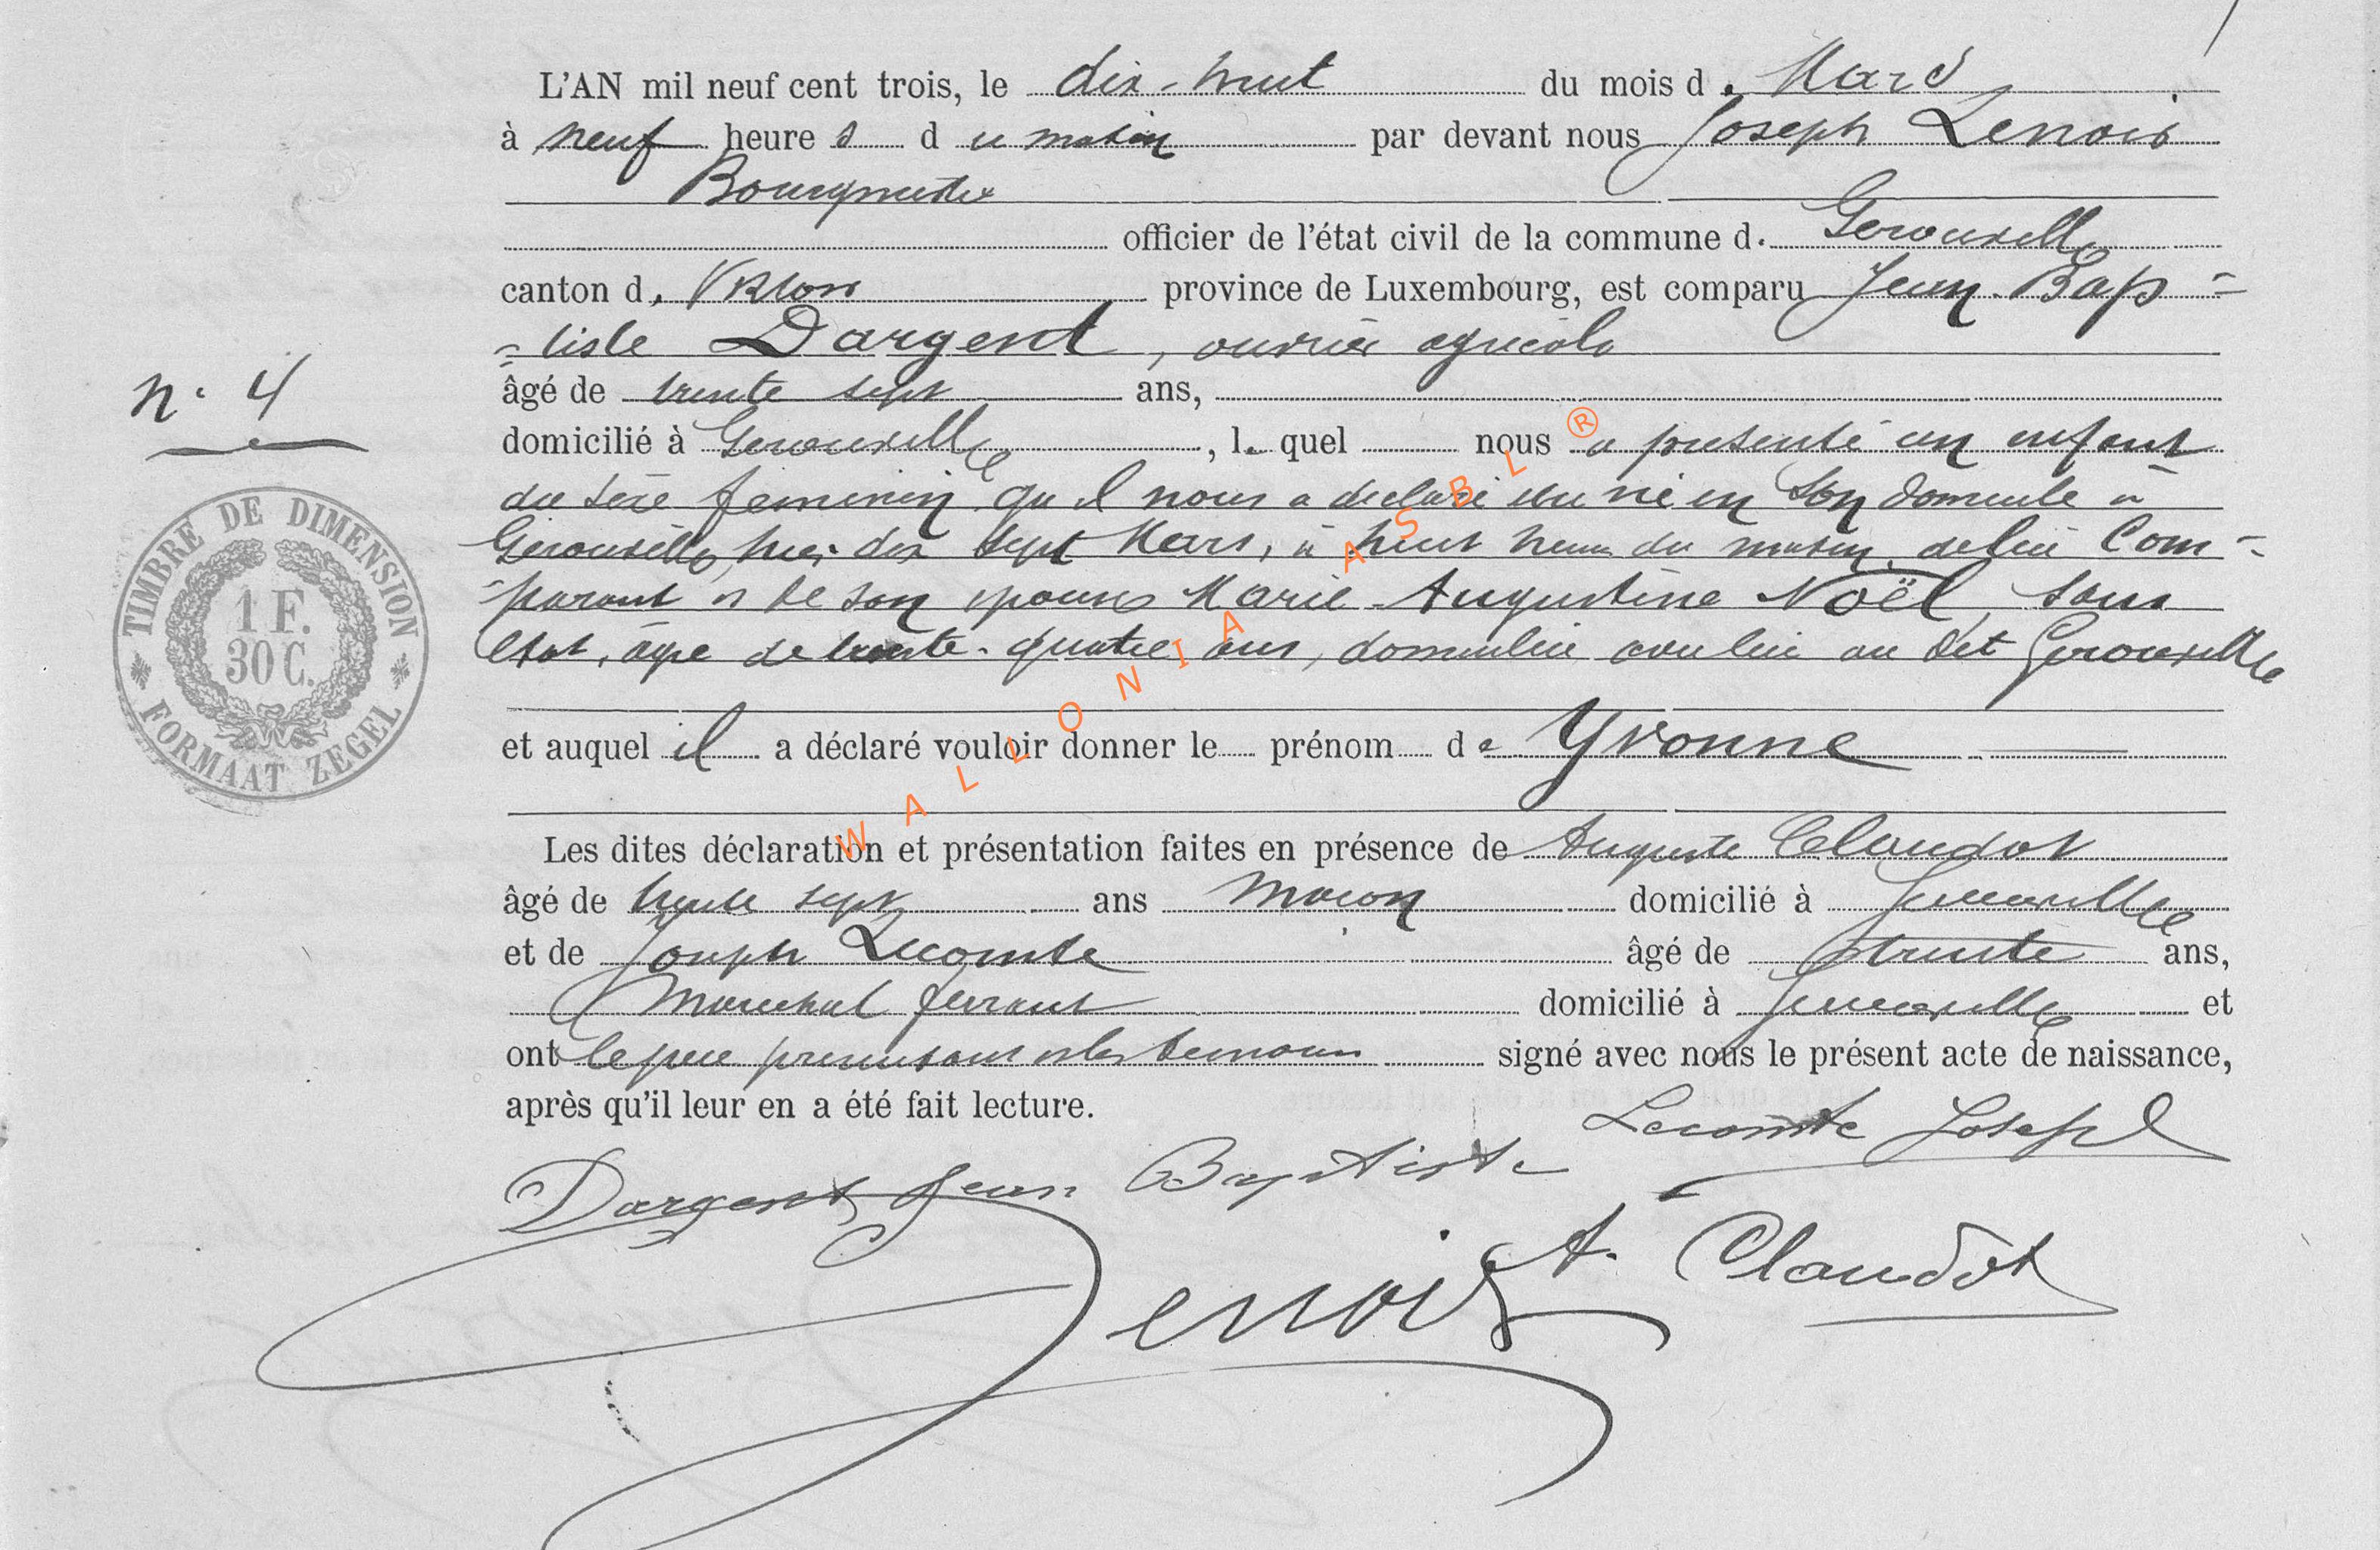 L'AN mil neuf cent trois, le dix-huit du mois d. Mars
à neuf heure s du matin par devant nous Joseph Lenoir
Bourgmestre
officier de l'état civil de la commune d. Gerouville
canton d. Virton province de Luxembourg, est comparu Jean-Bap=
=tiste Dargent, ouvrier agricole
n. 4
âgé de trente sept ans,
domicilié à Gerouville, le quel nous a presenté un enfant
du sexe feminin qu'il nous a declaré être né en son domicile à
Gerouville, hier dix sept Mars, à huit heures du matin, de lui Com=
=parant et de son epouse Marie-Augustine Noël, sans
etat, âgée de trente-quatre ans, domiciliée avec lui au dit Gerouville
TIMBRE DE DIMENSION
1 F.
30 C.
FORMAAT ZEGEL
et auquel il a déclaré vouloir donner le prénom de Yvonne
Les dites déclaration et présentation faites en présence de Auguste Claudot
âgé de trente sept ans macon domicilié à Gerouville
et de Joseph Lecomte âgé de trente ans,
Marechal ferrant domicilié à Gerouville et
ont le pere presentant et les temoins signé avec nous le présent acte de naissance,
après qu'il leur en a été fait lecture.
Lecomte Joseph
Dargent Jean Baptiste
A. Claudot
Lenoir
WALLONIA ASBL ®